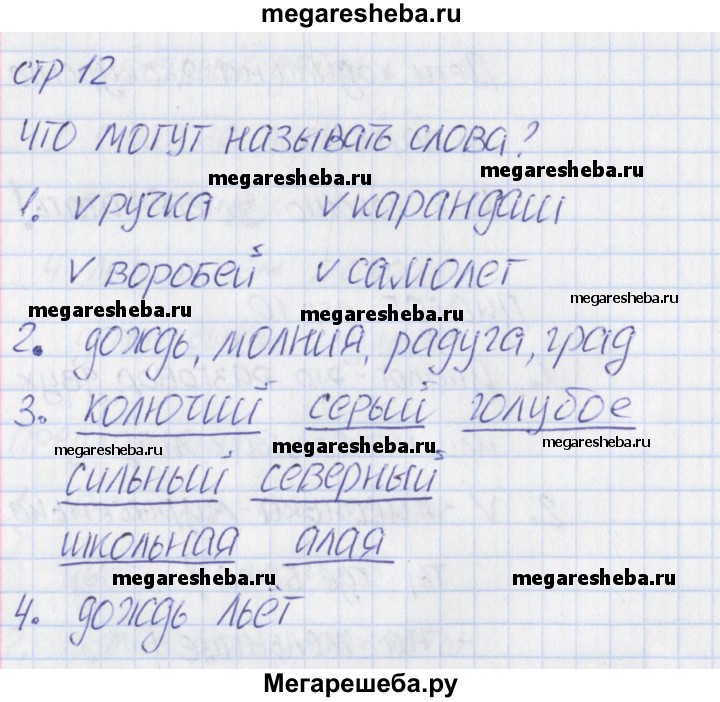 megaresheba.ru
стр 12
что могут называть слова?
megaresheba.ru megaresheba.ru
1. v ручка v карандаш
v воробей v самолет
megaresheba.ru megaresheba.ru megaresheba.ru
2. дождь, молния, радуга, град
3. колючий серый голубое
megaresheba.ru megaresheba.ru megaresheba.ru
сильный северный
школьная алая
megaresheba.ru megaresheba.ru
4. дождь льёт
Мегарешеба.ру